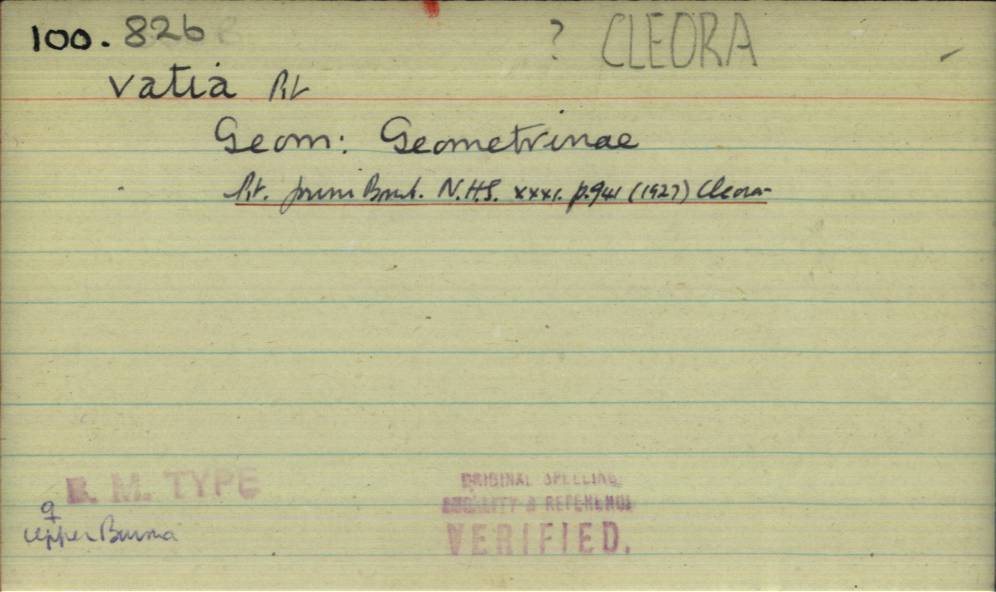 100.826 ? CLEORA
vatia Prt
Geom: Geometrinae
Prt. Journ Bomb. N.H.S. xxxi. p.941 (1927) Cleora
B. M. TYPE
♀
Upper Burma
ORIGINAL SPELLING,
LOCALITY & REFERENCE
VERIFIED.